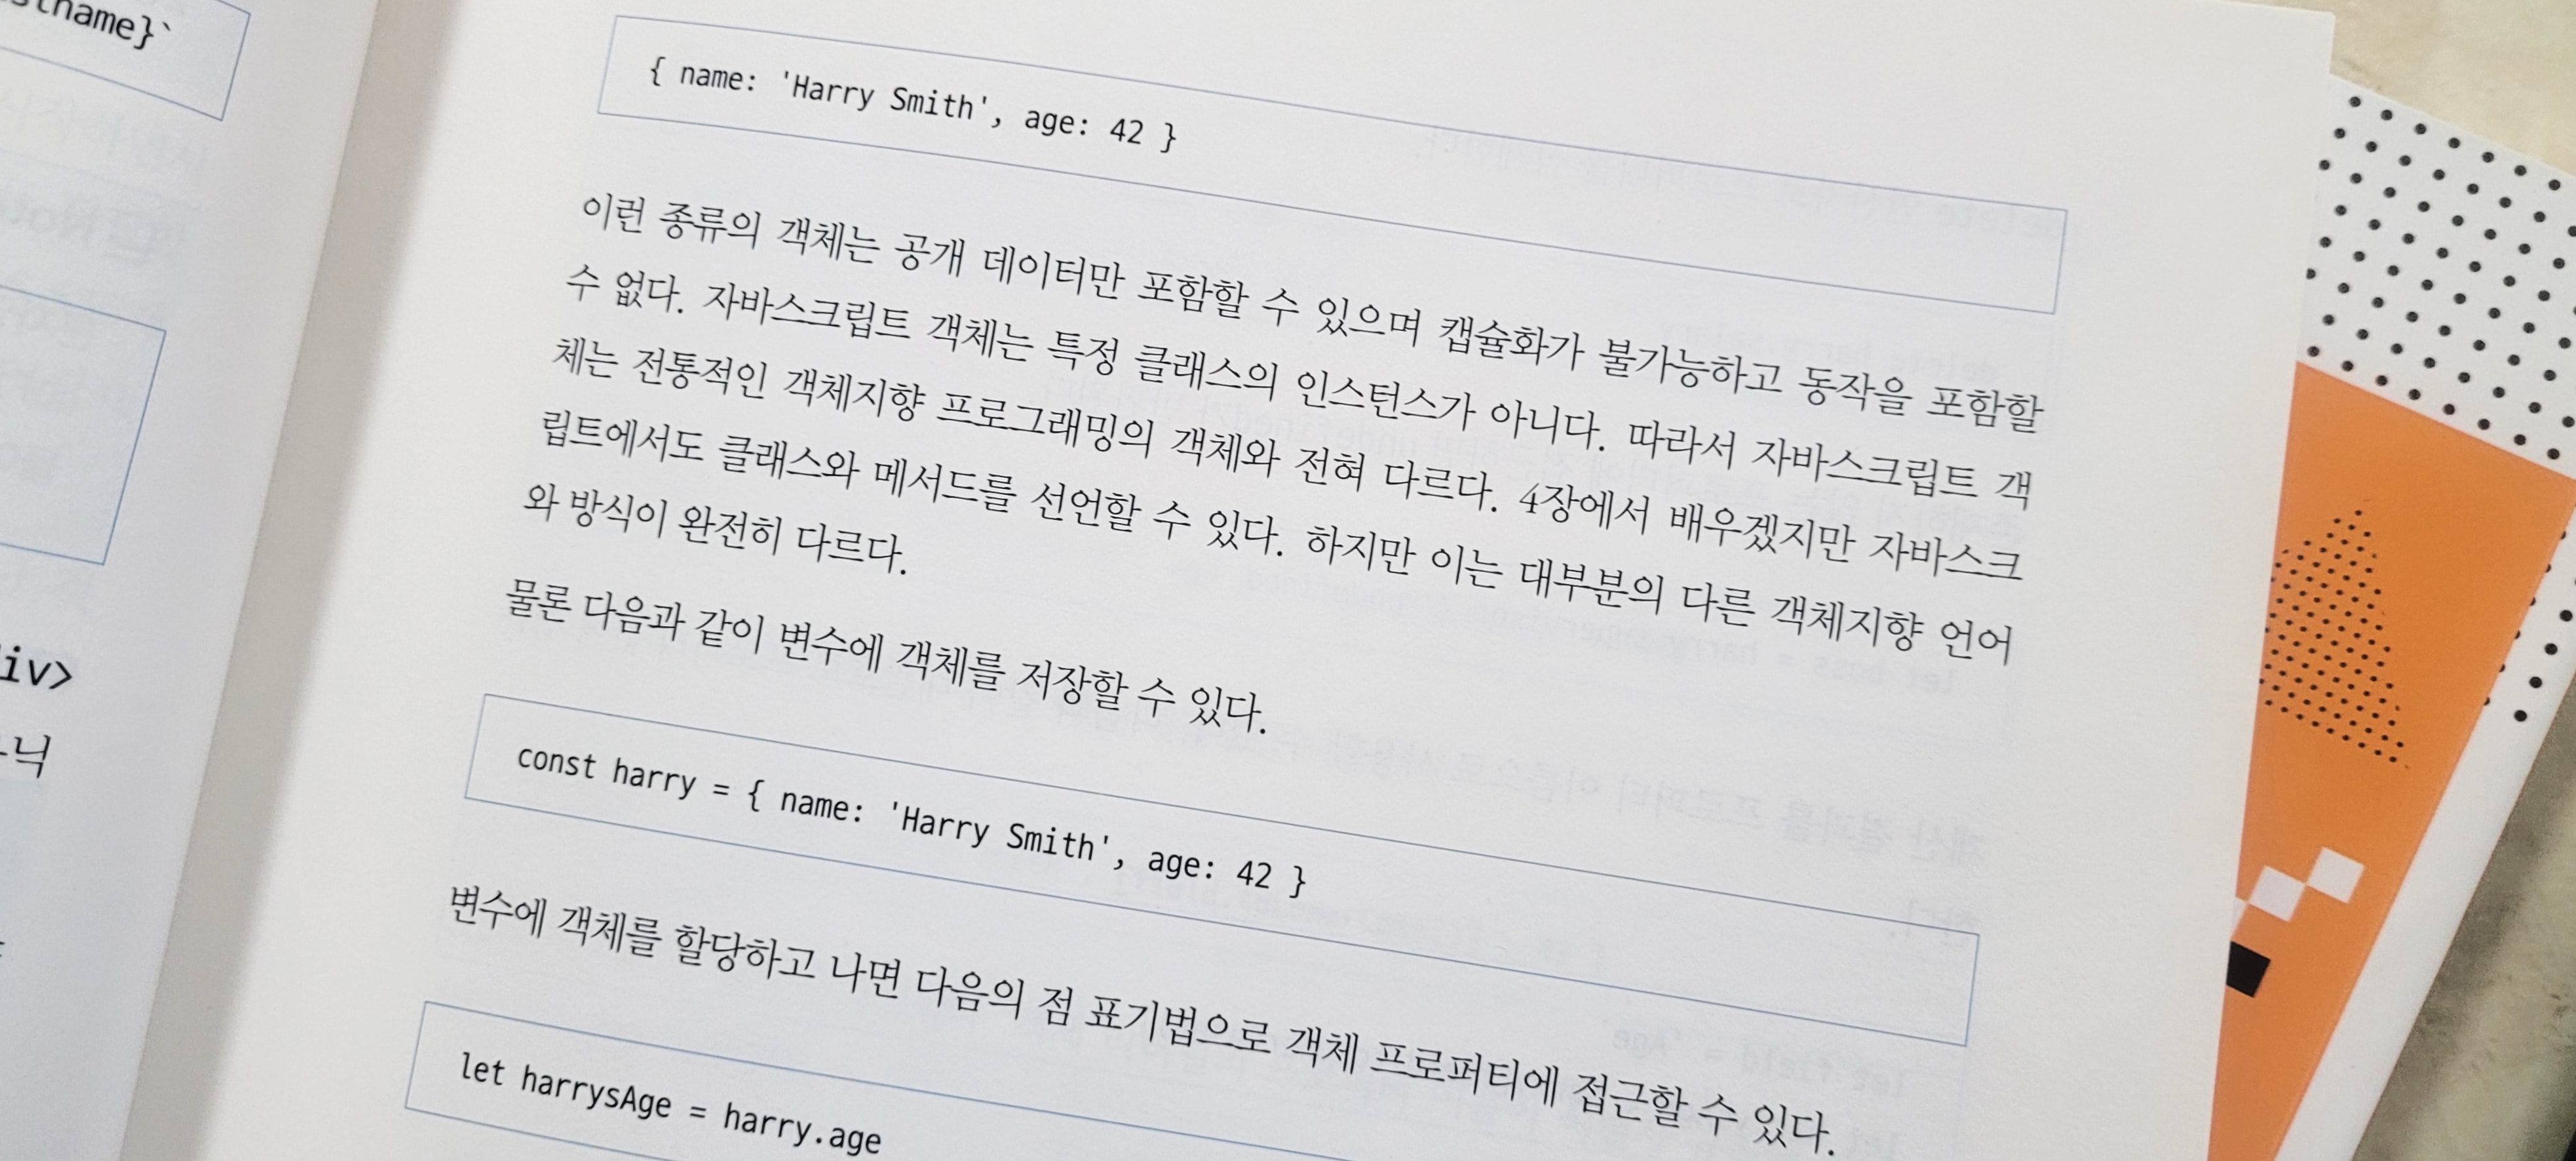 name}`
iv>
닉
{ name: 'Harry Smith', age: 42 }
이런 종류의 객체는 공개 데이터만 포함할 수 있으며 캡슐화가 불가능하고 동작을 포함할
수 없다. 자바스크립트 객체는 특정 클래스의 인스턴스가 아니다. 따라서 자바스크립트 객
체는 전통적인 객체지향 프로그래밍의 객체와 전혀 다르다. 4장에서 배우겠지만 자바스크
립트에서도 클래스와 메서드를 선언할 수 있다. 하지만 이는 대부분의 다른 객체지향 언어
와 방식이 완전히 다르다.
물론 다음과 같이 변수에 객체를 저장할 수 있다.
const harry = { name: 'Harry Smith', age: 42 }
변수에 객체를 할당하고 나면 다음의 점 표기법으로 객체 프로퍼티에 접근할 수 있다.
let harrysAge = harry.age